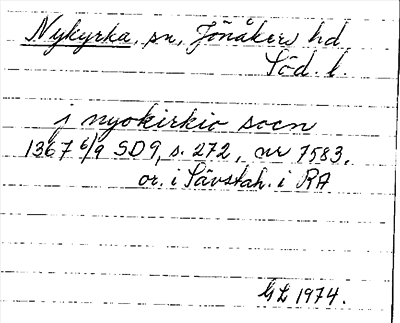 Nykyrka, sn, Jönåkers hd
Söd. l.
j nyokirkio socn
1367 6/9 SD9, s. 272, nr 7583,
or. i Sävstah. i RA
GL 1974.